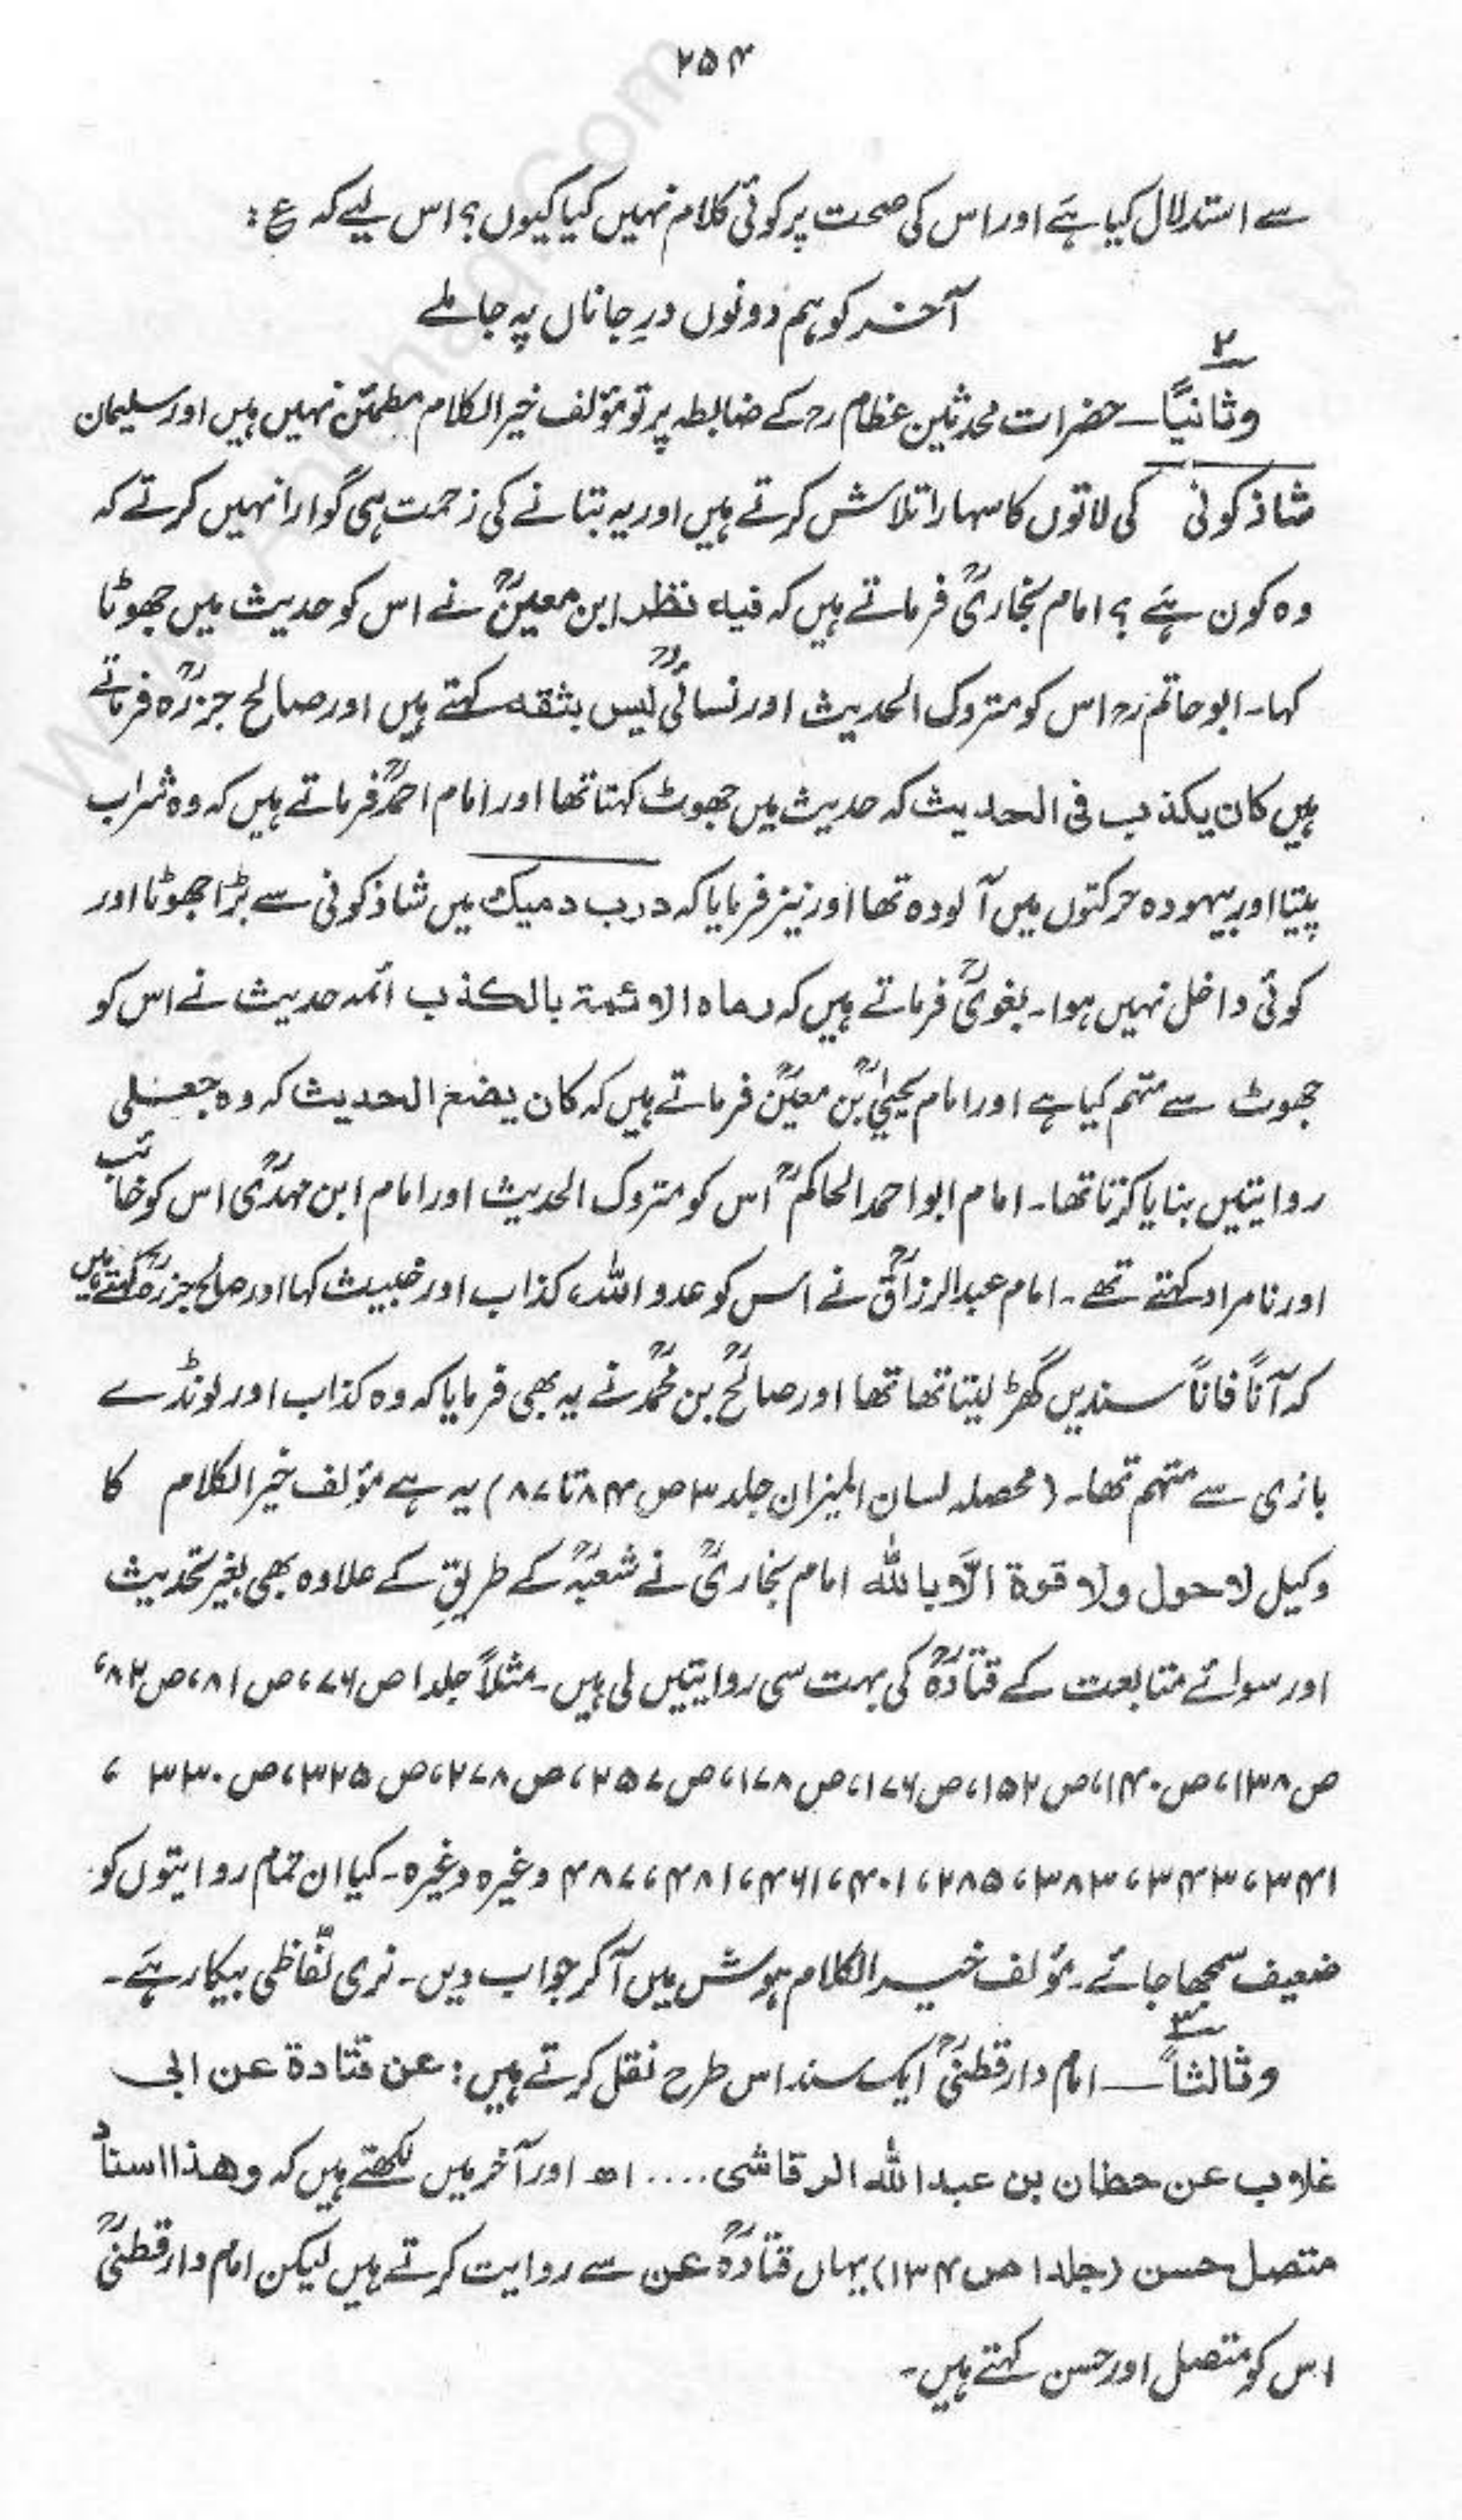 ۲۵۴
سے استدلال کیا ہے اور اس کی صحت پر کوئی کلام نہیں کیا کیوں؟ اس لیے کہ ع :
آخر کو ہم دونوں درِ جاناں پہ جا ملے
۲
وثانیاً ـــ حضرات محدثین عظام رح کے ضابطہ پر تو مؤلف خیر الکلام مطمئن نہیں ہیں اور سلیمان
شاذ کونی کی لاتوں کا سہارا تلاش کرتے ہیں اور یہ بتانے کی زحمت ہی گوارا نہیں کرتے کہ
وہ کون ہے ؟ امام بخاریؒ فرماتے ہیں کہ فیہ نظر ابن معینؒ نے اس کو حدیث میں جھوٹا
کہا۔ ابو حاتم رح اس کو متروک الحدیث اور نسائیؒ لیس بثقہ کہتے ہیں اور صالح جزرہؒ فرماتے
ہیں کان یکذب فی الحدیث کہ حدیث میں جھوٹ کہتا تھا اور امام احمدؒ فرماتے ہیں کہ وہ شراب
پیتا اور بیہودہ حرکتوں میں آلودہ تھا اور نیز فرمایا کہ درب دمیک میں شاذ کونی سے بڑا جھوٹا اور
کوئی داخل نہیں ہوا۔ بغویؒ فرماتے ہیں کہ رماہ الائمۃ بالکذب ائمہ حدیث نے اس کو
جھوٹ سے متہم کیا ہے اور امام یحییٰؒ بن معینؒ فرماتے ہیں کہ کان یضع الحدیث کہ وہ جعلی
روایتیں بنایا کرتا تھا۔ امام ابو احمد الحاکمؒ اس کو متروک الحدیث اور امام ابن مہدیؒ اس کو خائب
اور نامراد کہتے تھے۔ امام عبدالرزاقؒ نے اس کو عدو اللہ، کذاب اور خبیث کہا اور صالح جزرہؒ کہتے ہیں
کہ آناً فاناً سندیں گھڑ لیتا تھا تھا اور صالحؒ بن محمدؒ نے یہ بھی فرمایا کہ وہ کذاب اور لونڈے
بازی سے متہم تھا۔ (محصلہ لسان المیزان جلد ۳ ص ۸۴ تا ۸۷) یہ ہے مؤلف خیر الکلام کا
وکیل لا حول ولا قوۃ الّا باللہ امام بخاریؒ نے شعبہؒ کے طریق کے علاوہ بھی بغیر تحدیث
اور سوائے متابعت کے قتادہؒ کی بہت سی روایتیں لی ہیں۔ مثلاً جلد ۱ ص ۷۶، ص ۸۱، ص ۸۲،
ص ۱۳۸، ص ۱۴۰، ص ۱۵۲، ص ۱۷۶، ص ۱۷۸، ص ۲۵۷، ص ۲۷۸، ص ۳۲۵، ص ۳۳۰ ،
۳۴۱، ۳۴۳، ۳۸۳، ۲۸۵، ۴۰۱، ۴۶۱، ۴۸۱، ۴۸۷ وغیرہ وغیرہ۔ کیا ان تمام روایتوں کو
ضعیف سمجھا جائے۔ مؤلف خیر الکلام ہوش میں آکر جواب دیں۔ نری لفّاظی بیکار ہے۔
۳
وثالثاً ـــ امام دارقطنیؒ ایک سند اس طرح نقل کرتے ہیں : عن قتادۃ عن ابی
غلاب عن حطان بن عبداللہ الرقاشی .... اھ اور آخر میں لکھتے ہیں کہ وھذا اسناد
متصل حسن (جلد ۱ ص ۱۳۴) یہاں قتادہؒ عن سے روایت کرتے ہیں لیکن امام دارقطنیؒ
اس کو متصل اور حسن کہتے ہیں۔